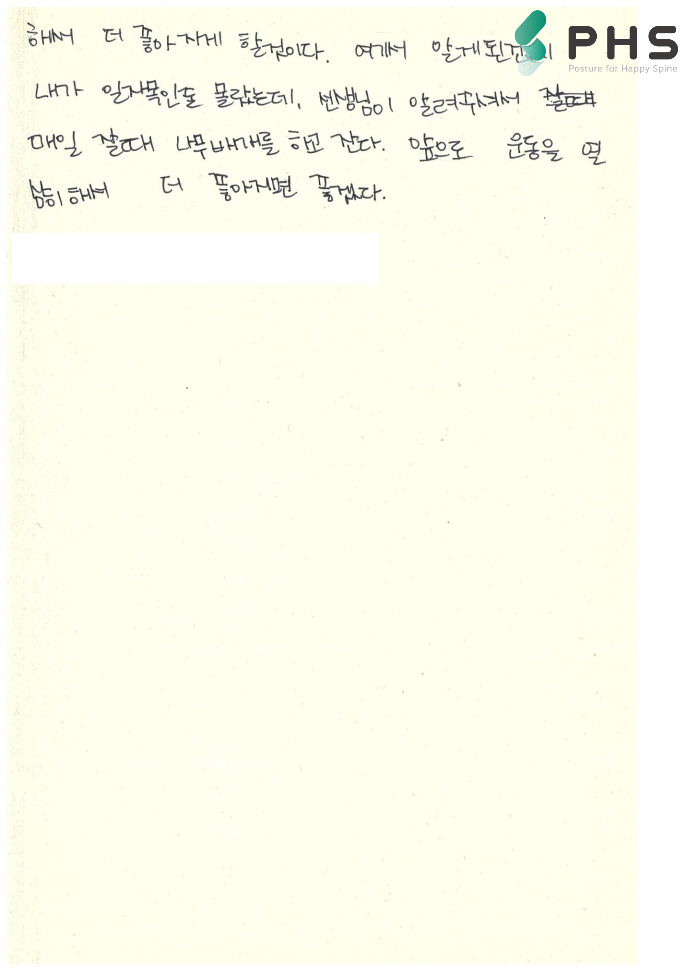 해서 더 좋아지게 할것이다. 여기서 알게된건
PHS
Posture for Happy Spine
내가 일자목인줄 몰랐는데, 선생님이 알려주셔서 잘때
매일 잘때 나무배개를 하고 잔다. 앞으로 운동을 열
심히해서 더 좋아지면 좋겠다.